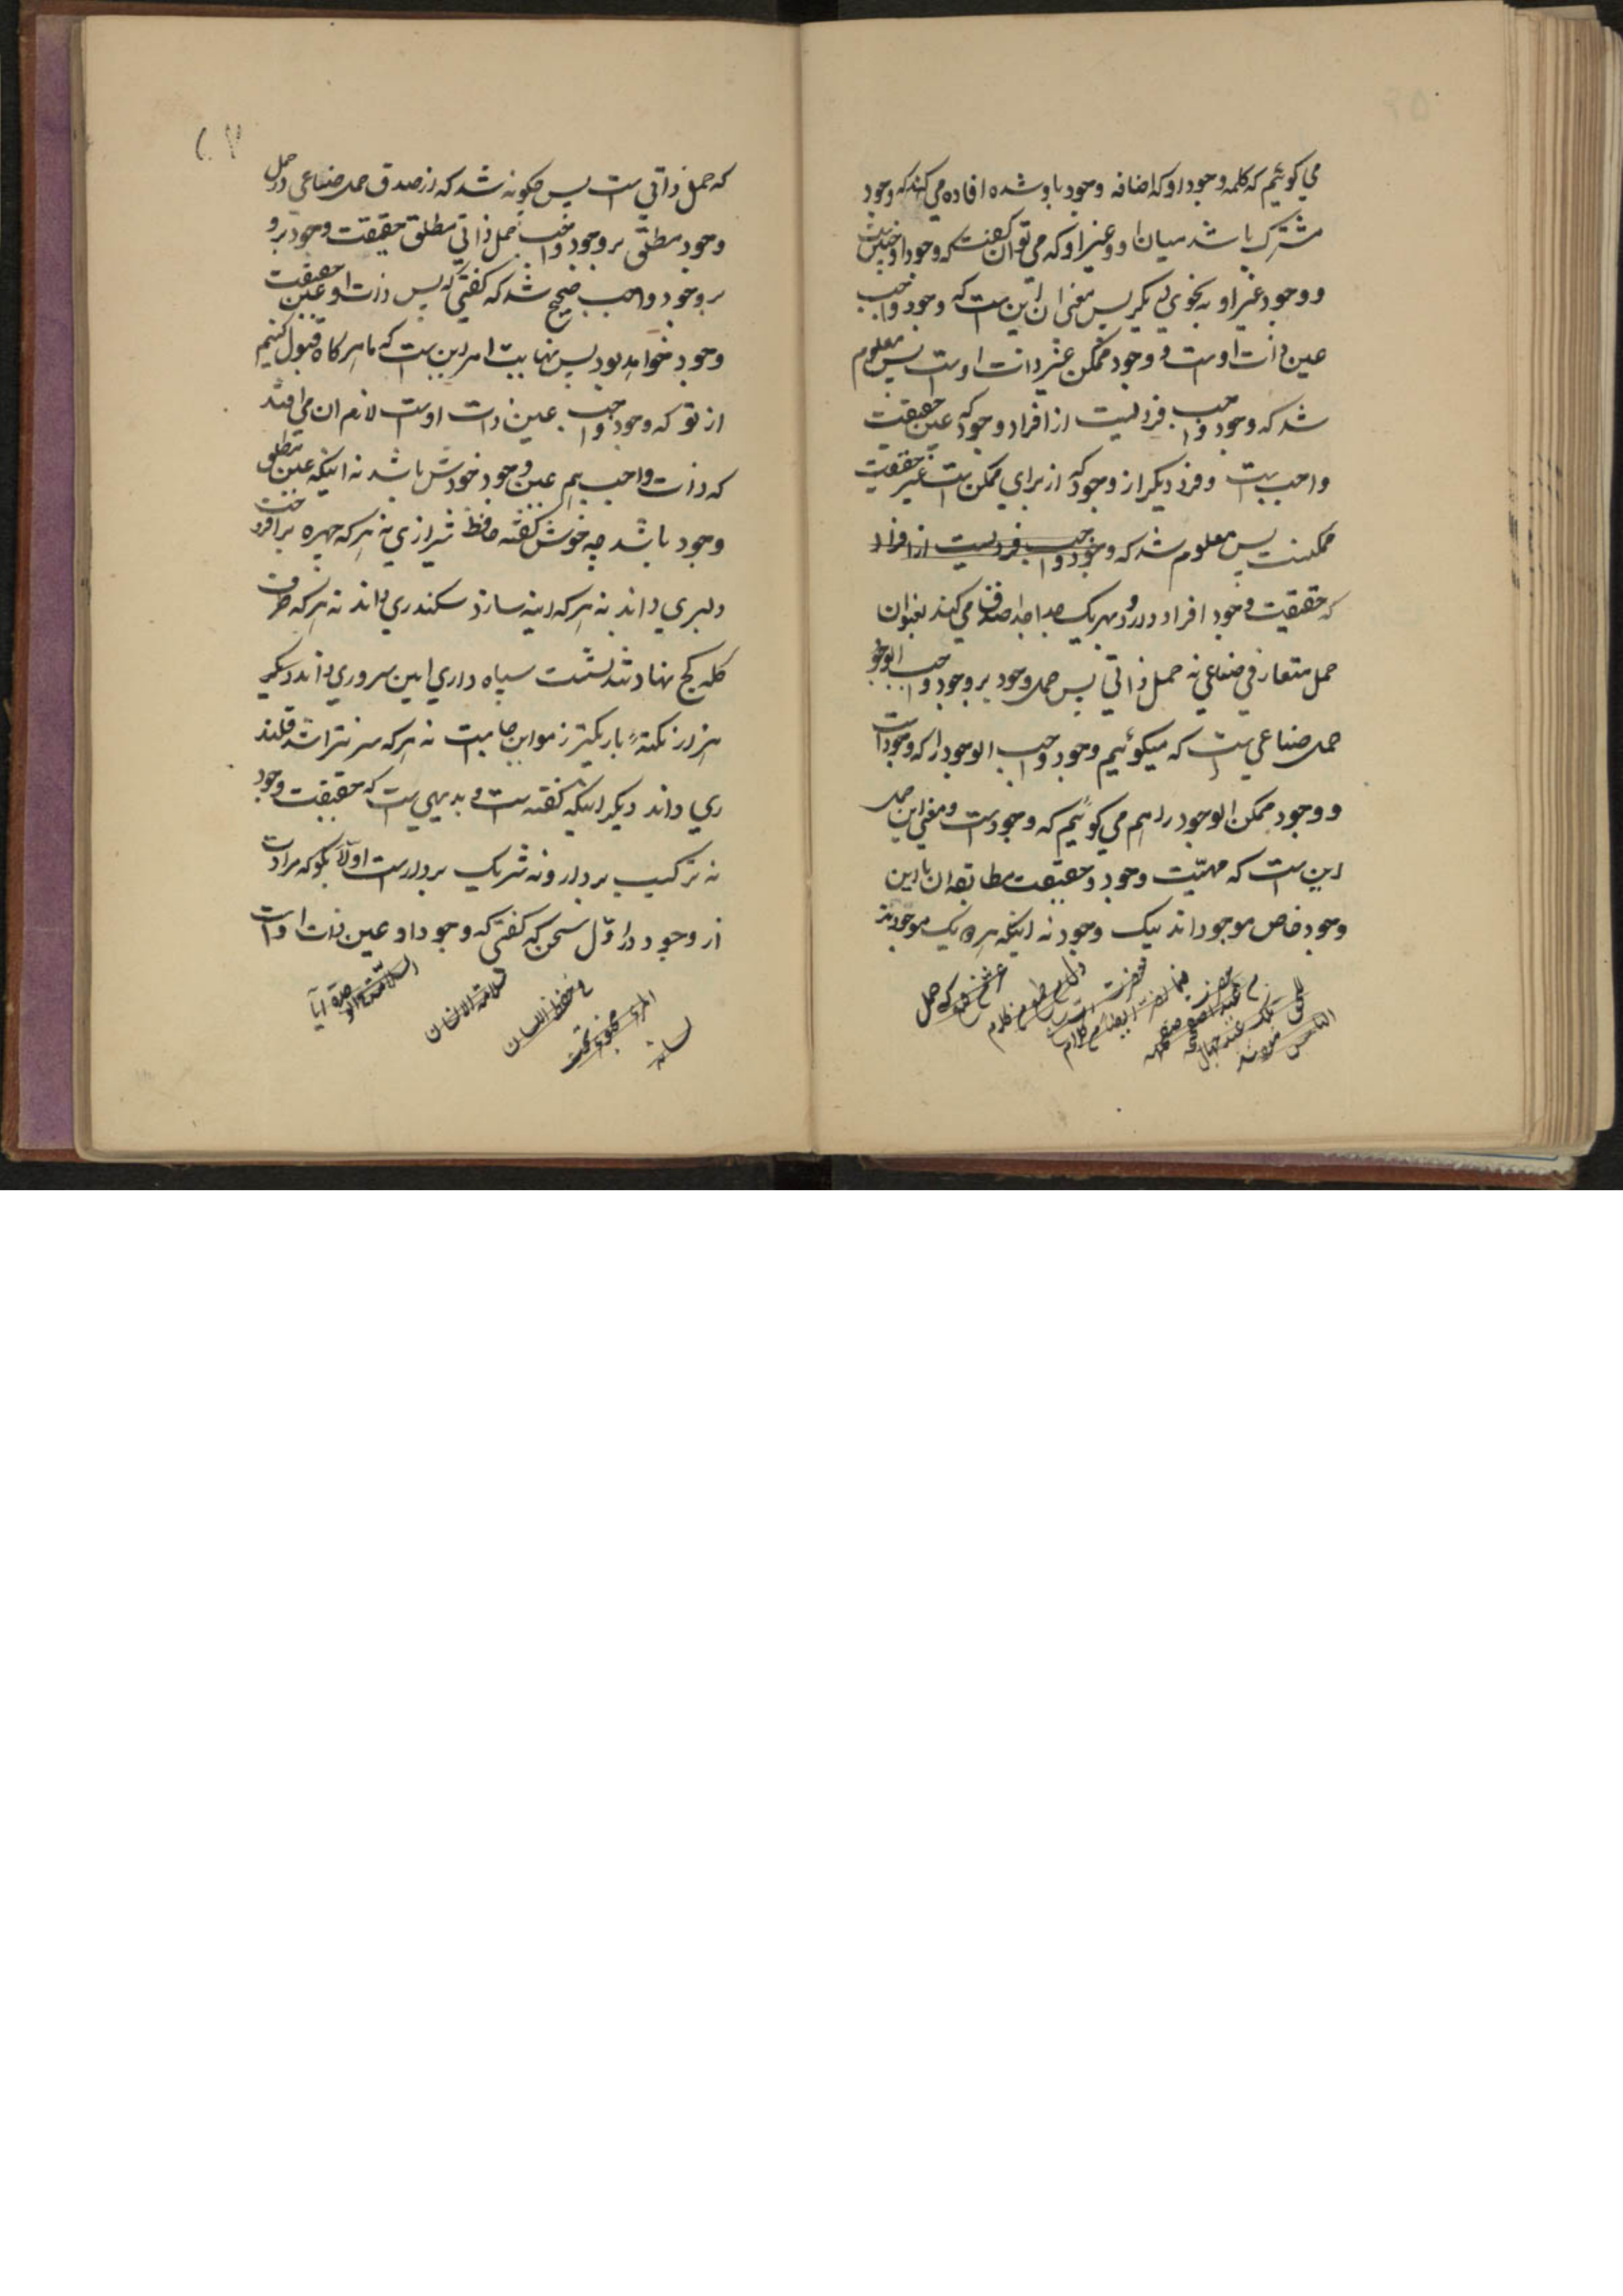 می گوئیم که کلمه وجود او که اضافه وجود باو شده افاده می کند که وجود
مشترک باشد میان او و غیر او که می توان گفت که وجود او چنین است
و وجود غیر او به نحوی دیگر پس معنی ان این است که وجود واجب
عین ذات اوست و وجود ممکن غیر ذات اوست پس معلوم
شد که وجود واجب فردیست از افراد وجود که عین حقیقت
واجب است و فرد دیگر از وجود که از برای ممکن است غیر حقیقت
ممکنست پس معلوم شد که وجود واجب فردیست از افراد
که حقیقت وجود افراد دارد و بهر یک جدا جدا صدق می کند بعنوان
حمل متعارفی صناعی نه حمل ذاتی پس حمل وجود بر وجود واجب الوجود
حمل صناعی است که میگوئیم وجود واجب الوجود را که وجود است
و وجود ممکن الوجود را هم می گوئیم که وجود است و معنی این حمل
این است که مهیّت وجود و حقیقت مطابقه ان با این
وجود خاص موجوداند بیک وجود نه اینکه هر یک موجودند
که حمل ذاتی است پس چگونه شد که از صدق حمل صناعی در حمل
وجود مطلق بر وجود واجب حمل ذاتی مطلق حقیقت وجود بر و
بر وجود واجب صحیح شد که گفتی که پس ذات او عین حقیقت
وجود خواهد بود پس نهایت امر این است که ما هر کاه قبول کنیم
از تو که وجود واجب عین ذات اوست لازم ان می افتد
که ذات واجب هم عین وجود خودش باشد نه اینکه عین مطلق
وجود باشد چه خوش گفته حافظ شیرازی نه هر که چهره بر افروخت
دلبری داند نه هر که اینه سازد سکندری داند نه هر که طرف
کله کج نهاد و تند نشست سپاه داری ایین سروری داند دیگر
هزار نکتهٴ باریکتر ز مو این جا است نه هر که سر نتراشد قلند
ری داند دیگر اینکه گفته است و بدیهی است که حقیقت وجود
نه ترکیب بردار و نه شریک بردار است اولاً بگو که مرادت
از وجود در اول سخن که گفتی که وجود او عین ذات او است
سلامة الانسان
فی حفظ اللسان
المرء مخبو تحت
لسانه